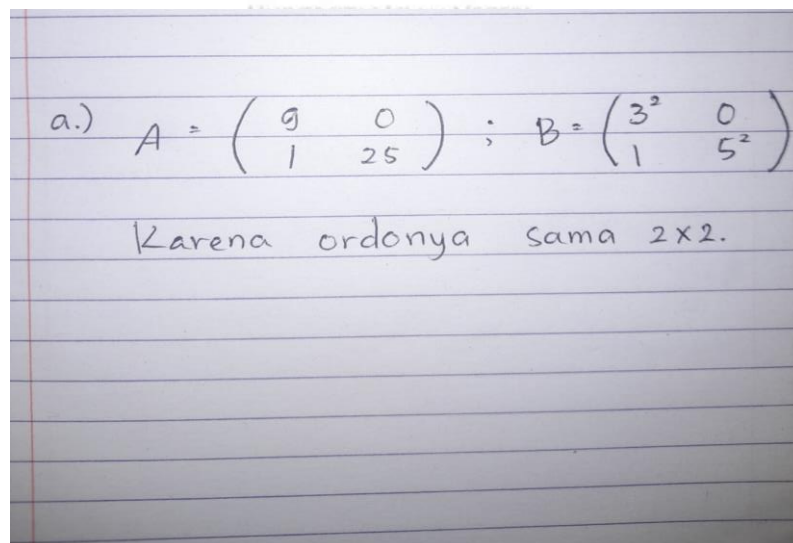 a.) A = ( 9 0 ; 1 25 ) ; B = ( 3² 0 ; 1 5² )
Karena ordonya sama 2x2.